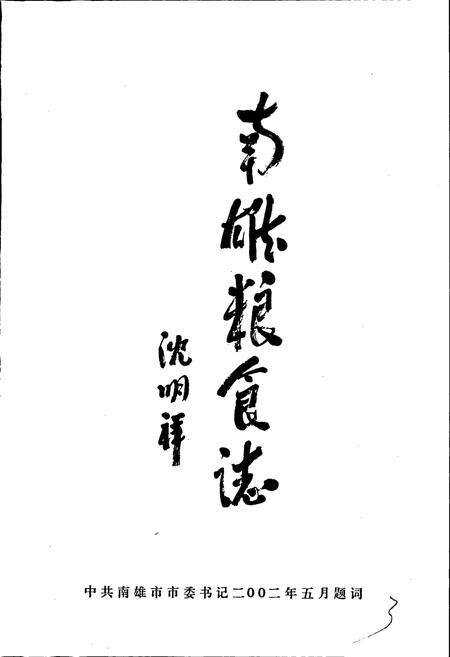 南雄粮食誌
沈明祥
中共南雄市市委书记二00二年五月题词
3